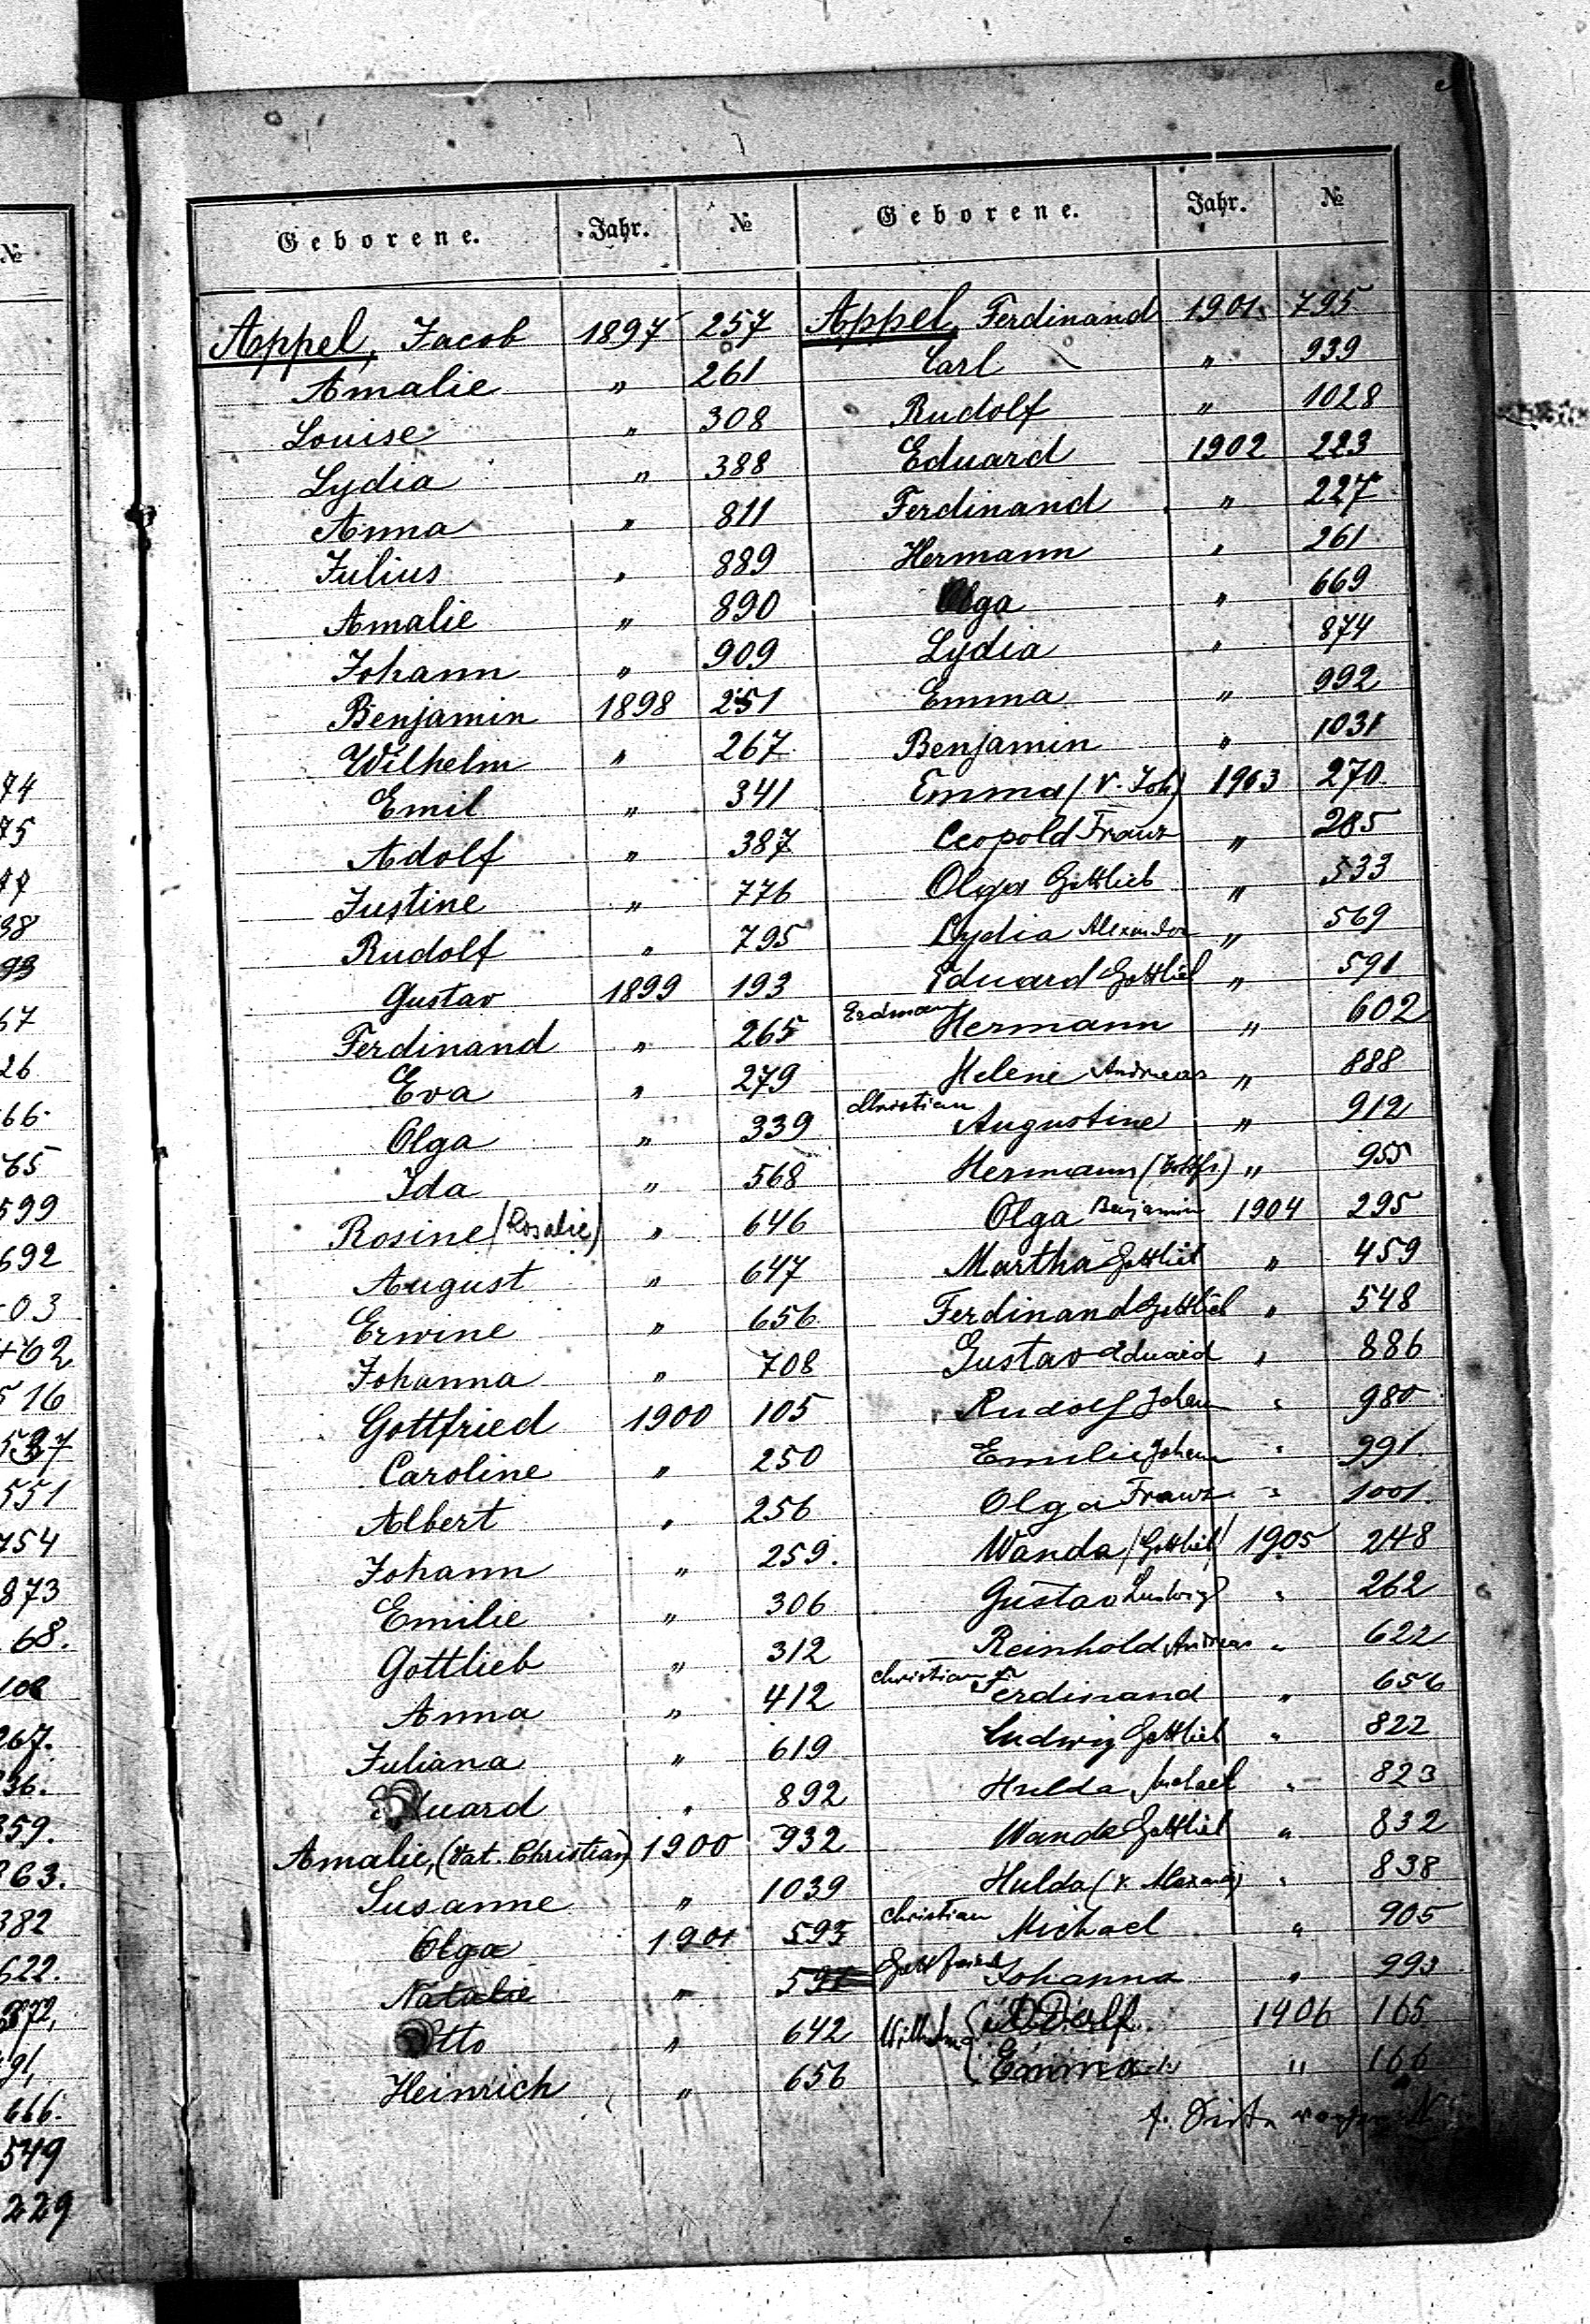 №
74
75
77
98
93
57
26
66.
65
599
692
03
462
516
537
551
754
873
68.
108
267.
336.
359.
363.
382
622.
872,
91,
666.
549
229
Geborene. Jahr. №
Appel, Jacob 1897 257
Amalie " 261
Louise " 308
Lydia " 388
Anna " 811
Julius " 889
Amalie " 890
Johann " 909
Benjamin 1898 251
Wilhelm " 267
Emil " 341
Adolf " 387
Justine " 776
Rudolf " 795
Gustav 1899 193
Ferdinand " 265
Eva " 279
Olga " 339
Ida " 568
Rosine (Rosalie) " 646
August " 647
Erwine " 656
Johanna " 708
Gottfried 1900 105
Caroline " 250
Albert " 256
Johann " 259.
Emilie " 306
Gottlieb " 312
Anna " 412
Juliana " 619
Eduard " 892
Amalie, (Vat. Christian) 1900 932
Susanne " 1039
Olga 1901 595
Natalie "
Otto " 642
Heinrich " 656
Geborene. Jahr. №
Appel, Ferdinand 1901 795
Carl " 939
Rudolf " 1028
Eduard 1902 223
Ferdinand " 227
Hermann " 261
Olga " 669
Lydia " 874
Emma " 992
Benjamin " 1031
Emma (V. Joh) 1903 270
Leopold Franz " 285
Olga Gottlieb " 533
Lydia Alexander " 569
Eduard Gottlieb " 591
Erdmann Hermann " 602
Helene Andreas " 888
Christian Augustine " 912
Hermann (Gottfr.) " 955
Olga Benjamin 1904 295
Martha Gottlieb " 459
Ferdinand Gottlieb " 548
Gustav Eduard " 886
Rudolf Johann " 980
Emilie Johann " 991.
Olga Franz " 1001.
Wanda (Gottlieb) 1905 248
Gustav Ludwig " 262
Reinhold Andreas " 622
Christian Ferdinand " 656
Ludwig Gottlieb " 822
Hulda Michael " 823
Wanda Gottlieb " 832
Hulda (V. Alexand) " 838
Christian Michael " 905
Gottfried Johanna " 993
Wilhelm { Adolf 1906 165
{ Emma " 166